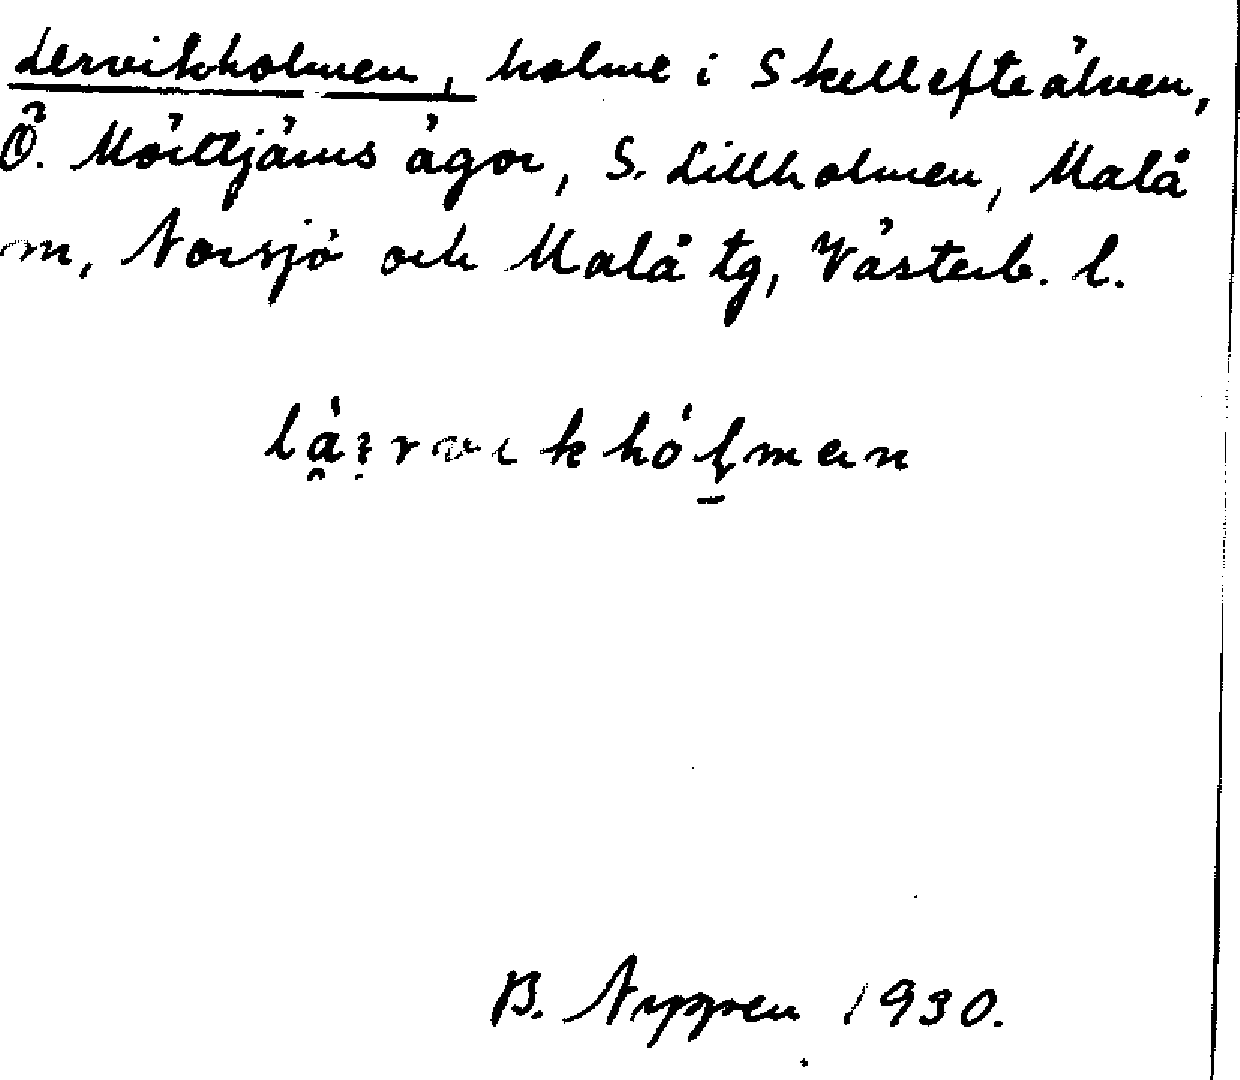 Lervikholmen, holme i Skellefteälven,
Ö. Mörttjärns ägor, S. Lillholmen, Malå
m, Norsjö och Malå tg, Västerb. l.
B. Nygren 1930.